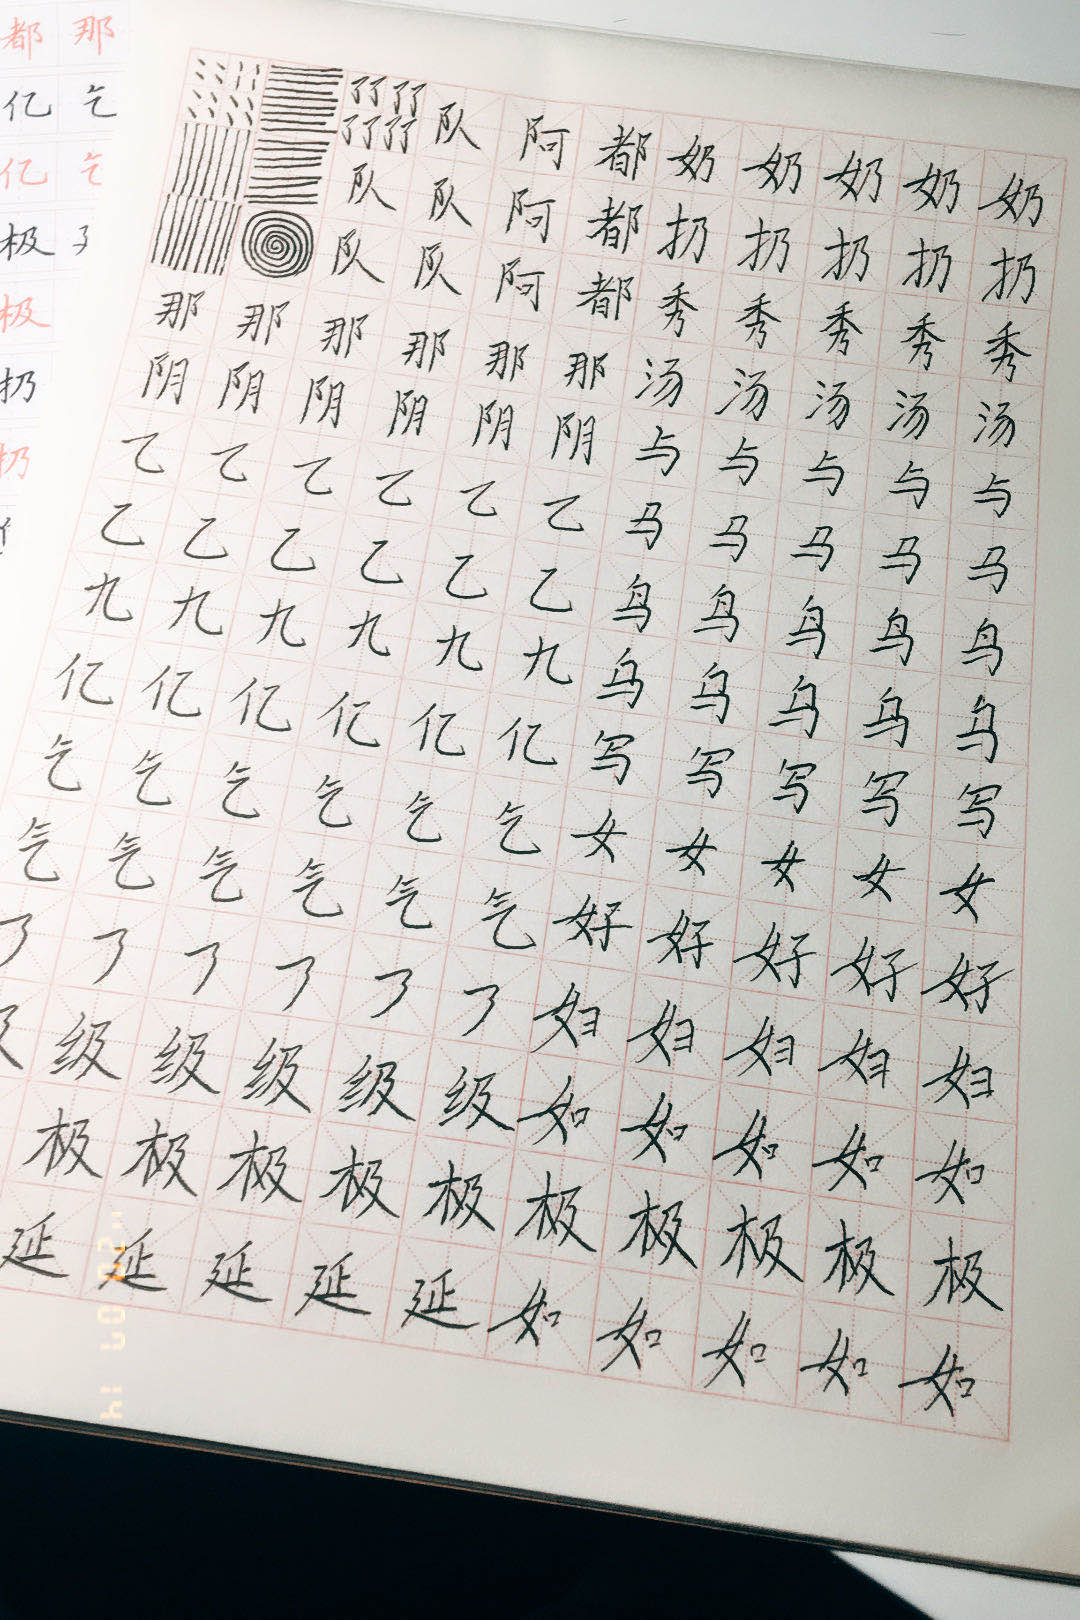 都 那
亿 乞
亿
极
极
扔
扔
队 阿 都 奶 奶 奶 奶 奶
队 队 阿 都 扔 扔 扔 扔 扔
队 队 阿 都 秀 秀 秀 秀 秀
那 那 那 那 那 那 汤 汤 汤 汤 汤
阴 阴 阴 阴 阴 阴 与 与 与 与 与
乙 乙 乙 乙 乙 乙 马 马 马 马 马
乙 乙 乙 乙 乙 乙 鸟 鸟 鸟 鸟 鸟
九 九 九 九 九 九 乌 乌 乌 乌 乌
亿 亿 亿 亿 亿 亿 写 写 写 写 写
乞 乞 乞 乞 乞 乞 女 女 女 女 女
气 气 气 气 气 气 好 好 好 好 好
妇 妇 妇 妇 妇
级 级 级 级 级 如 如 如 如 如
极 极 极 极 极 极 极 极 极 极
延 延 延 延 延 如 如 如 如 如